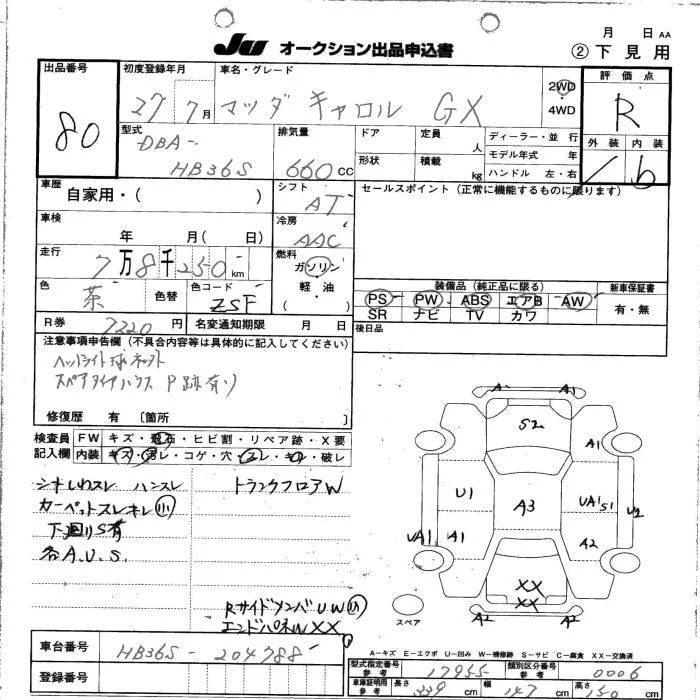 月 日 AA
JU オークション出品申込書
② 下見用
出品番号
80
初度登録年月
27 7月
車名・グレード
マツダ キャロル GX
2WD
4WD
評価点
R
外装 内装
/ b
型式
DBA-
HB36S
排気量
660 CC
ドア
定員
人
形状
積載
kg
ディーラー・並行
モデル年式 年
ハンドル 左・右
車歴
自家用・( )
シフト
AT
セールスポイント (正常に機能するものに限ります)
車検
年 月( 日)
冷房
AAC
走行
7万8千250km
燃料
ガソリン
軽・油
( )
色
茶
色替
色コード
ZSF
装備品 (純正品に限る)
新車保証書
PS PW ABS エアB AW
SR ナビ TV カワ
有・無
R券 7220円
名変通知期限 月 日
後日品
注意事項申告欄 (不具合内容等は具体的に記入してください)
スペアタイヤハウス P跡有り
修復歴 有 〔箇所 〕
検査員
記入欄
FW キズ・飛石・ヒビ割・リペア跡・X要
内装 キズ・汚レ・コゲ・穴・スレ・キレ・破レ
シナしわスレ ハンスレ
トランクフロアW
カーペットスレキレ
下廻りS有
各A.U.S.
RサイドメンバUW
エンドパネWXX
A A1
S2
A1
U1
A3
UA1 S1
U2
UA1
A1
A2
XX
XX
A2 A2
スペア
A-キズ E-エクボ U-凹み W-補修跡 S-サビ C-腐食 XX-交換済
車台番号
HB36S-204788
登録番号
型式指定番号
参考
17955
類別区分番号
参考
0006
車庫証明用
参考
長さ 339 cm
幅 147 cm
高さ 150 cm